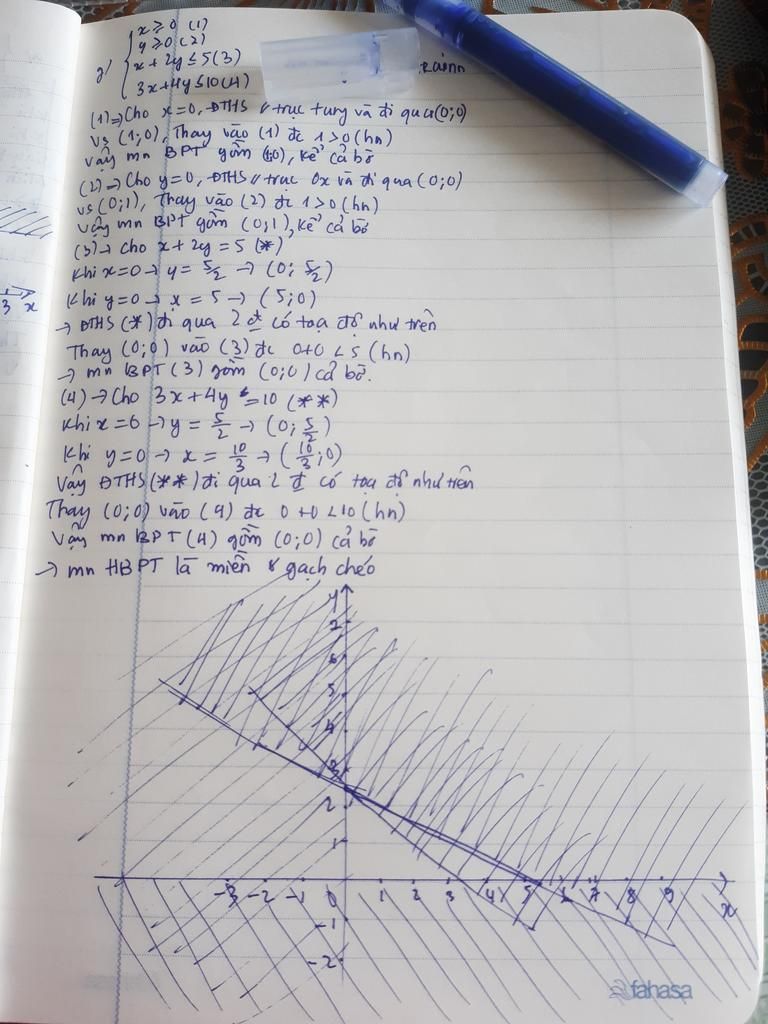 g) { x ≥ 0 (1)
y ≥ 0 (2)
x + 2y ≤ 5 (3)
3x + 4y ≤ 10 (4)
(1) → Cho x = 0, ĐTHS // trục tung và đi qua (0;0)
vs (1;0), Thay vào (1) đc 1 > 0 (hn)
Vậy mn BPT gồm (1;0), kể cả bờ
(2) → Cho y = 0, ĐTHS // trục Ox và đi qua (0;0)
vs (0;1), Thay vào (2) đc 1 > 0 (hn)
Vậy mn BPT gồm (0;1), kể cả bờ
(3) → Cho x + 2y = 5 (*)
Khi x = 0 → y = 5/2 → (0; 5/2)
Khi y = 0 → x = 5 → (5;0)
→ ĐTHS (*) đi qua 2 đ có toạ độ như trên
Thay (0;0) vào (3) đc 0+0 < 5 (hn)
→ mn BPT (3) gồm (0;0) cả bờ.
(4) → Cho 3x + 4y = 10 (**)
Khi x = 0 → y = 5/2 → (0; 5/2)
Khi y = 0 → x = 10/3 → (10/3; 0)
Vậy ĐTHS (**) đi qua 2 đ có toạ độ như trên
Thay (0;0) vào (4) đc 0 + 0 < 10 (hn)
Vậy mn BPT (4) gồm (0;0) cả bờ
→ mn HBPT là miền gạch chéo
y
7
6
5
4
3
2
1
-3 -2 -1 0 1 2 3 4 5 6 7 8 9 x
-1
-2
3 x
fahasa